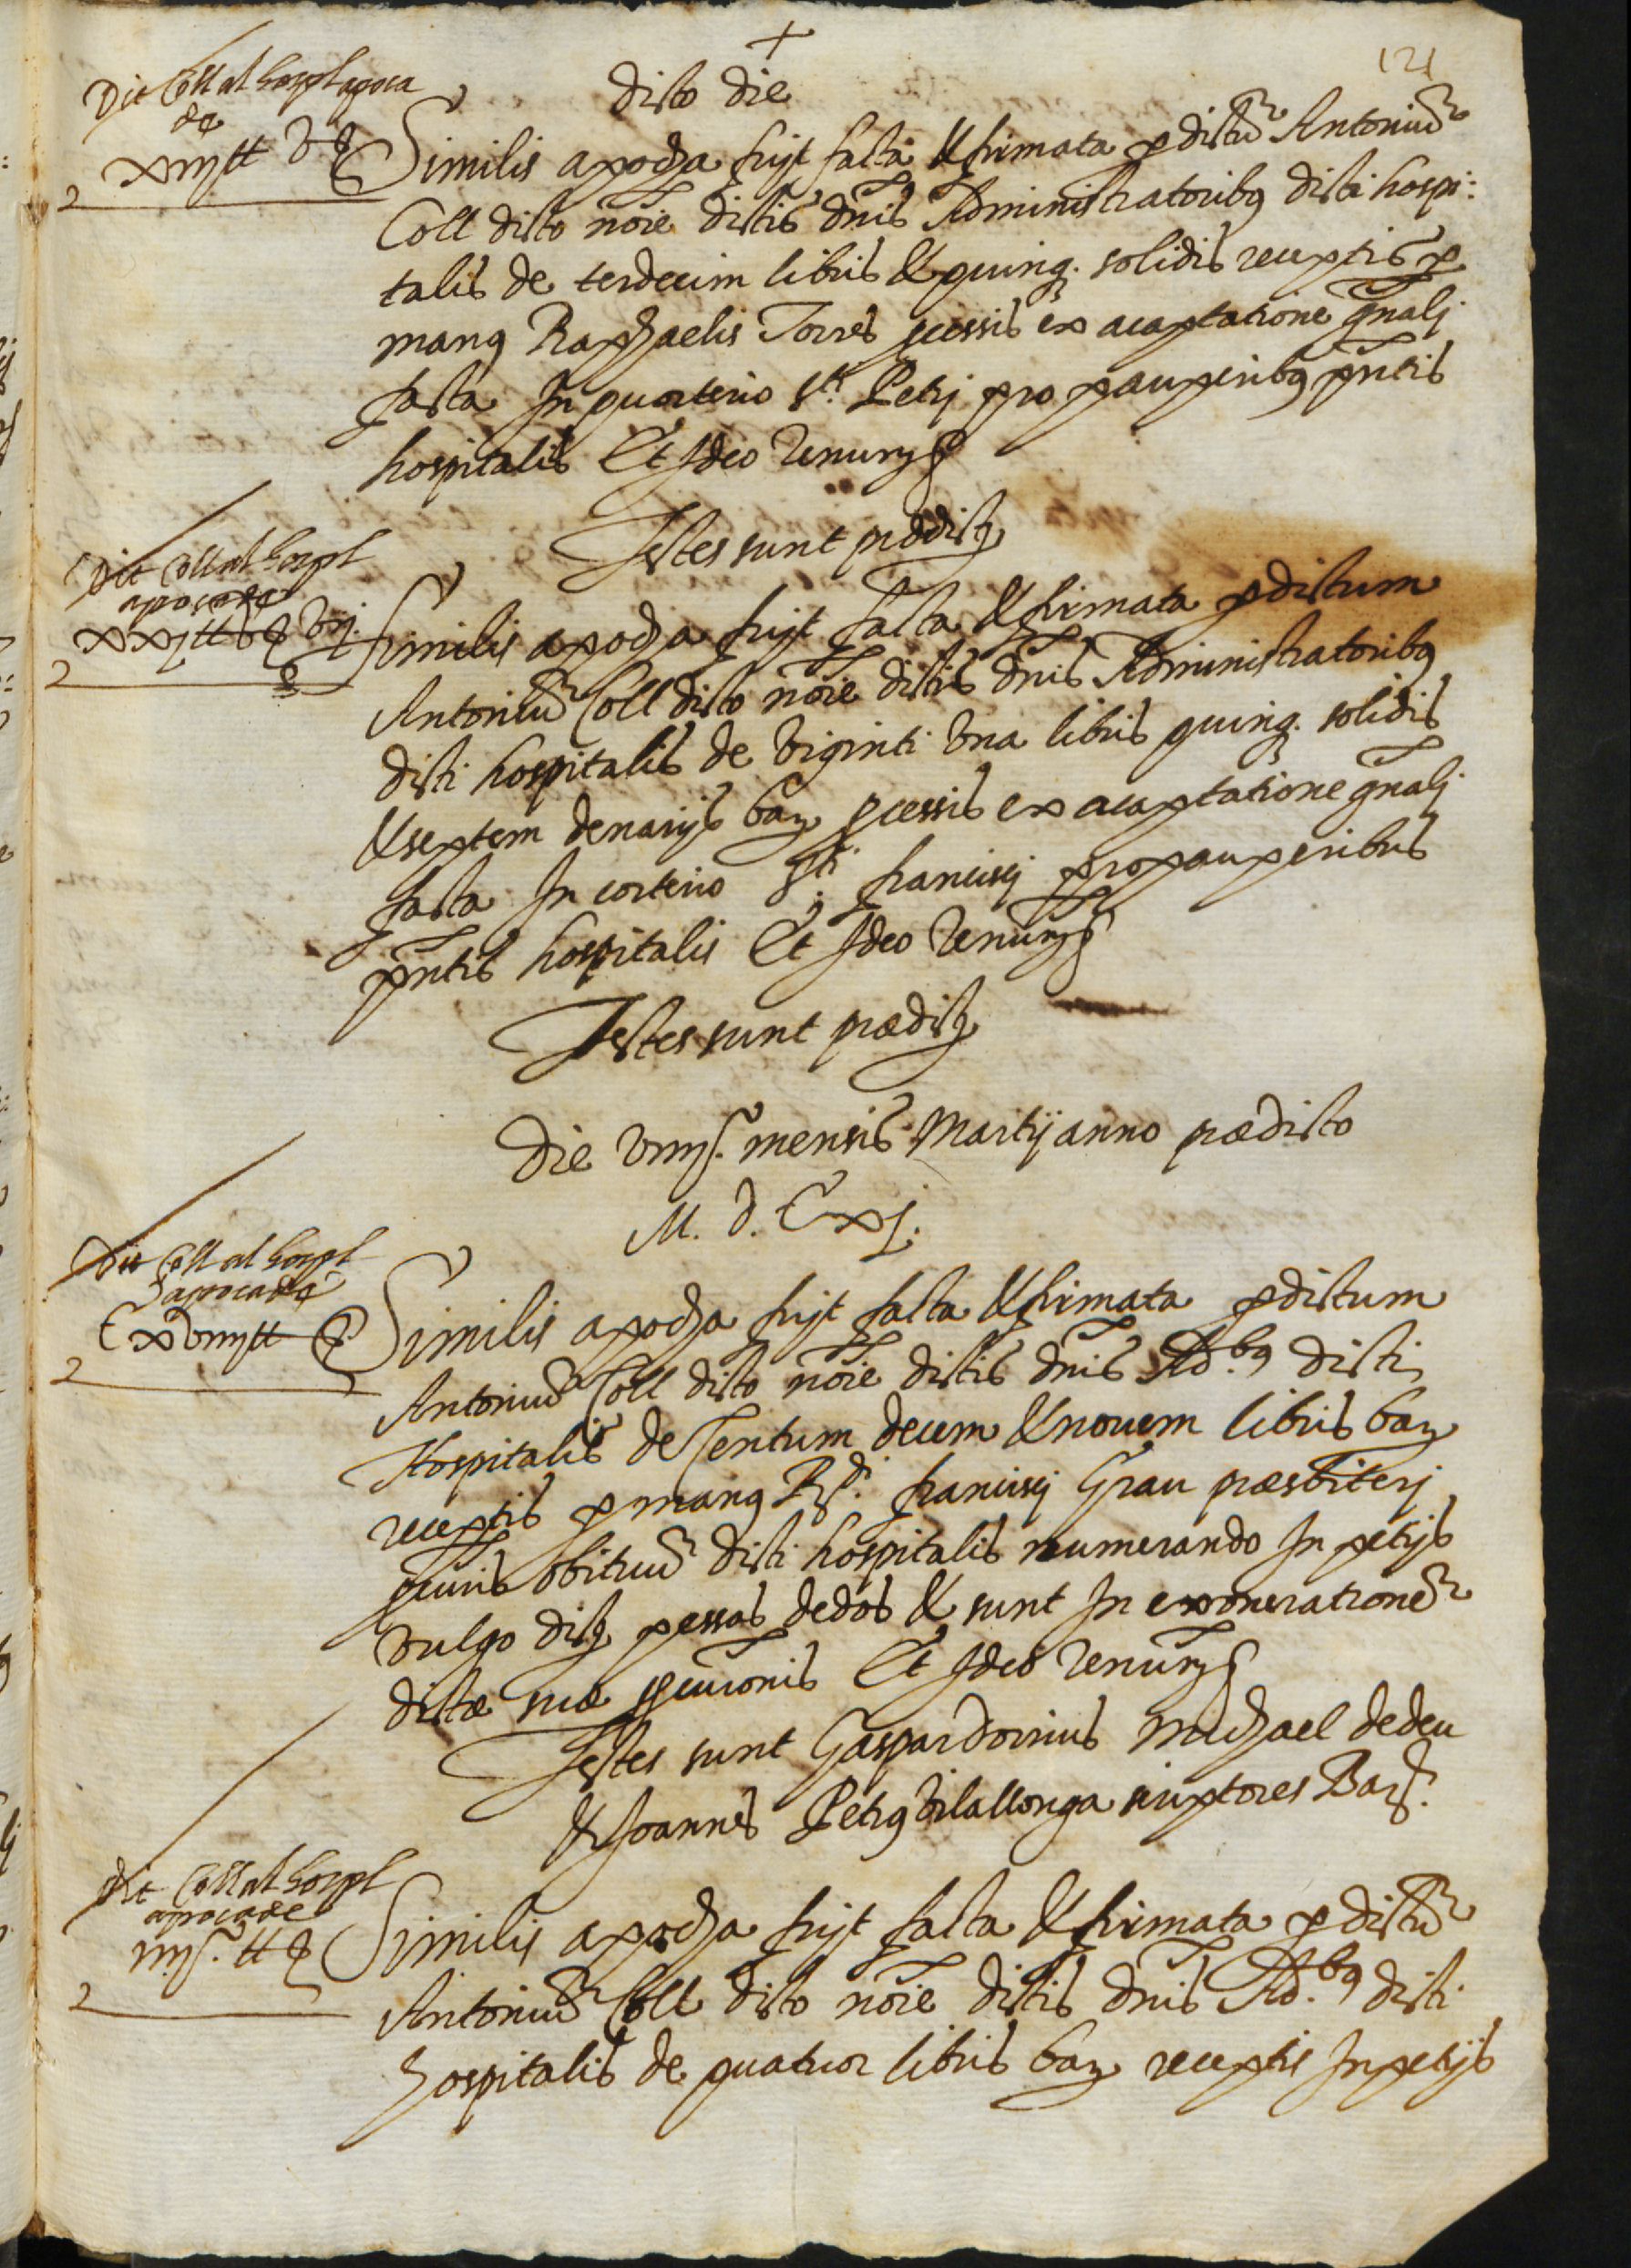 +
121
dicto die
Dit Coll al hospl apoca
de
xiij ll v ß
Similis apocha fuyt facta & firmata p dictũ Antoniũ
Coll dicto noie dictis dnis Administratoribȝ dicti hospi:
talis de terdecim libris & quinqȝ solidis receptis p
manȝ Raphaelis Torres pcessis ex acaptatione gnalj
facta In quarterio Sti Petrj pro pauperibȝ pntis
hospitalis Et Ideo Renunȝ
Testes sunt prædictj
Dit Coll al hospl
apoca de
xxj ll v ß vij
Similis apocha fuyt facta & firmata p dictum
Antoniũ Coll dicto noie dictis dnis Administratoribȝ
dicti hospitalis de viginti vna libris quinqȝ solidis
& septem denarijs barȝ pcessis ex acaptatione gnalj
facta In corterio Sti franciscj pro pauperibus
pntis hospitalis Et Ideo Renunȝ
Testes sunt prædictj
Die viiij. mensis Martij anno prædicto
M. d. Cxj.
Dit Coll al hospl
apoca de
Cxviiij ll ß
Similis apocha fuyt facta & firmata p dictum
Antoniũ Coll dicto noie dictis dnis Ad.bȝ dicti
Hospitalis de Centum decem & novem libris barȝ
receptis p manȝ Rdi. francisci Grau præsbiterj
pcuris obituũ dicti hospitalis numerando In petijs
vulgo dictj pessas dedos & sunt In exonerationẽ
dictæ suæ pcuronis Et Ideo Renunȝ
Testes sunt Gaspar Dorrius Michael dedeu
& Joannes Petrȝ vilallonga scriptores Barȝ.
Dit Coll al hospl
apoca de
iiij. ll ß
Similis apocha fuyt facta & firmata p dictũ
Antoniũ Coll dicto noie dictis dnis Ad.bȝ dicti
hospitalis de quatuor libris barȝ receptis In petijs